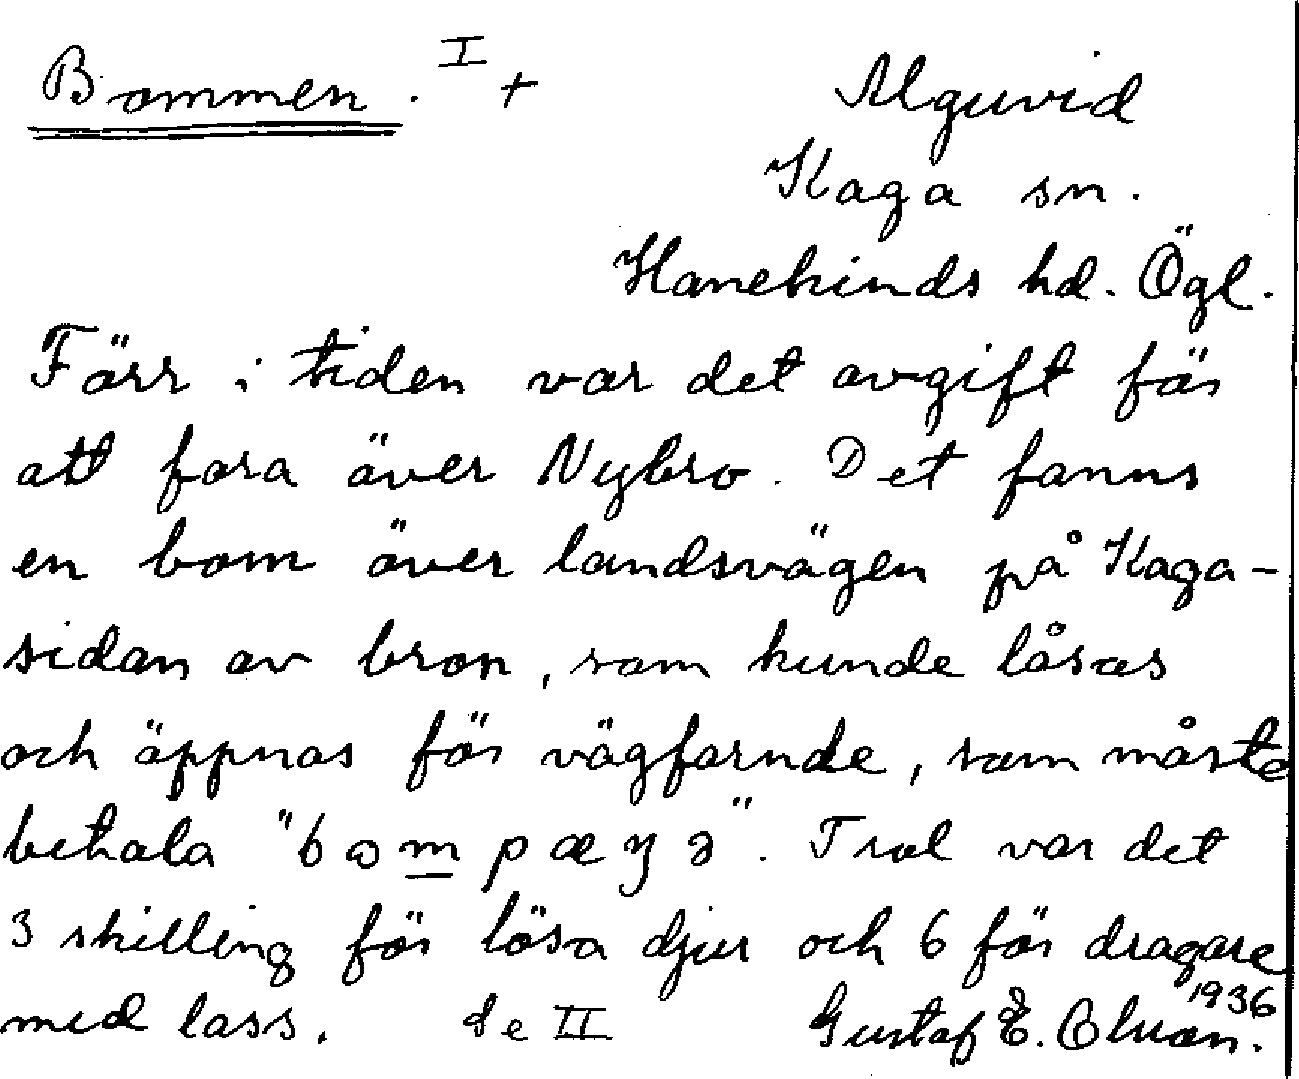 Bommen. I +
Alguvid
Kaga sn.
Hanekinds hd. Ögl.
Förr i tiden var det avgift för
att fara över Nybro. Det fanns
en bom över landsvägen på Kaga-
sidan av bron, som kunde låsas
och öppnas för vägfarnde, som måste
betala "bɷmpæŋə". Trol var det
3 skilling för lösa djur och 6 för dragare
med lass. Se II Gustaf E. 1936